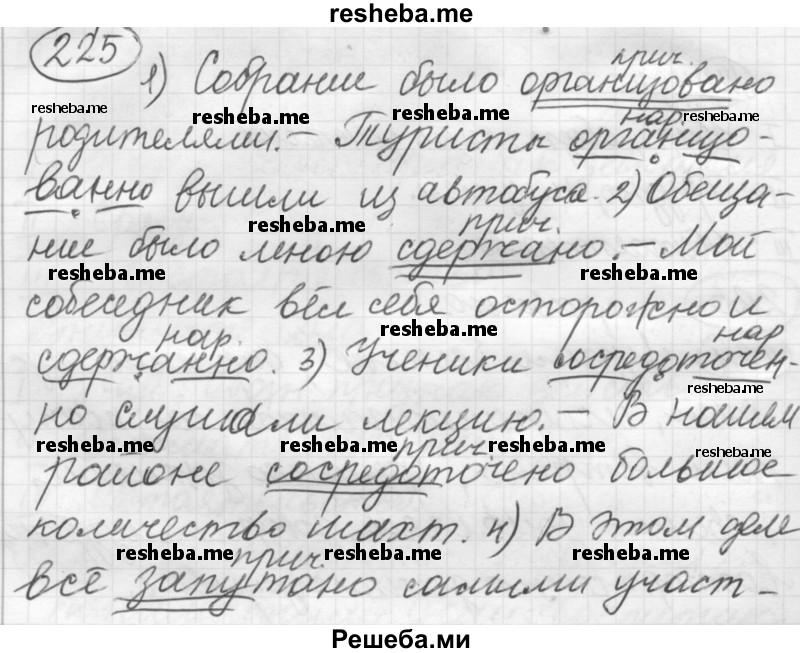 resheba.me
225
прич.
1) Собрание было организовано
resheba.me resheba.me resheba.me resheba.me
нар.
родителями. – Туристы организо-
ванно вышли из автобуса. 2) Обеща-
resheba.me
прич.
ние было мною сдержано. – Мой
resheba.me resheba.me
собеседник вёл себя осторожно и
resheba.me
нар. нар.
сдержанно. 3) Ученики сосредоточен-
resheba.me
но слушали лекцию. – В нашем
resheba.me resheba.me resheba.me resheba.me
прич.
районе сосредоточено большое
количество шахт. 4) В этом деле
resheba.me resheba.me resheba.me
прич.
всё запутано самими участ-
Решеба.ми